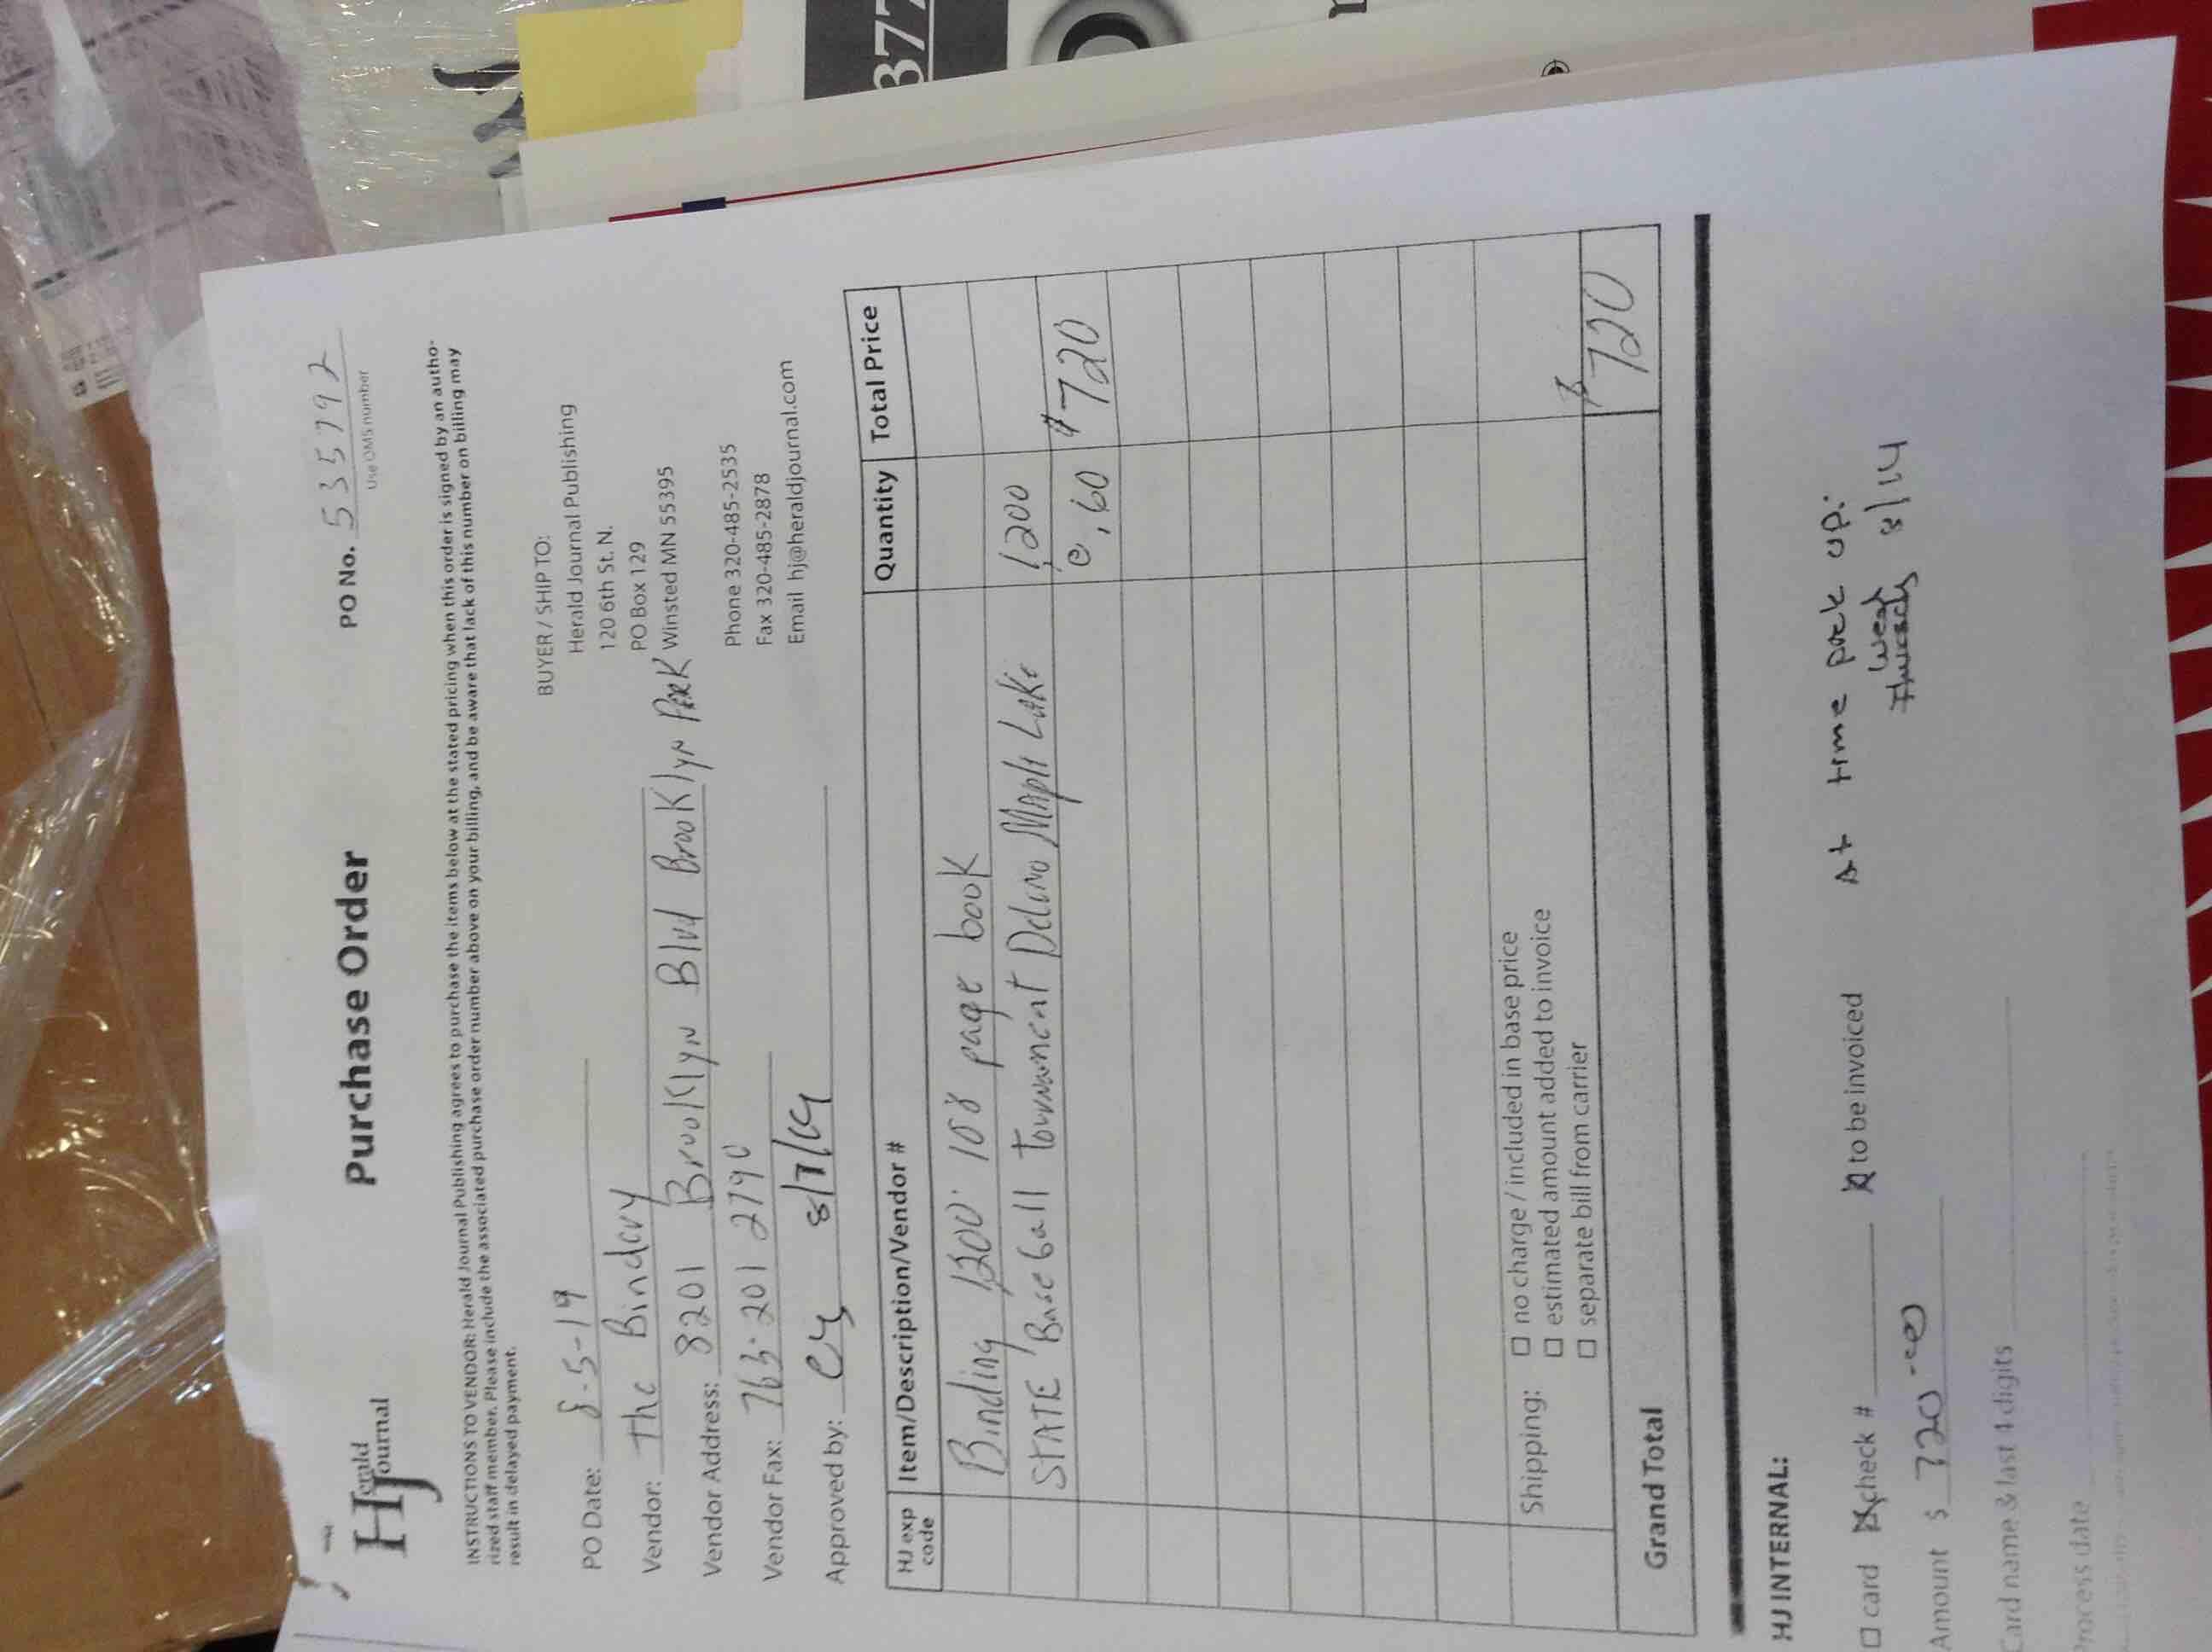 Herald Journal
Purchase Order
PO No. 535792
Use OMS number
INSTRUCTIONS TO VENDOR: Herald Journal Publishing agrees to purchase the items below at the stated pricing when this order is signed by an autho-
rized staff member. Please include the associated purchase order number above on your billing, and be aware that lack of this number on billing may
result in delayed payment.
PO Date: 8-5-19
Vendor: The Bindery
Vendor Address: 8201 Brooklyn Blvd Brooklyn Park
Vendor Fax: 763-201 2790
Approved by: 8/7/19
BUYER / SHIP TO:
Herald Journal Publishing
120 6th St. N.
PO Box 129
Winsted MN 55395
Phone 320-485-2535
Fax 320-485-2878
Email hj@heraldjournal.com
HJ exp code Item/Description/Vendor # Quantity Total Price
Binding 1200 108 page book
STATE Base ball tournament Delano Maple Lake 1,200
@ .60 $720
Shipping: □ no charge / included in base price
□ estimated amount added to invoice
□ separate bill from carrier
Grand Total $720
HJ INTERNAL:
□ card ☒ check # ☒ to be invoiced At time pick up:
Amount $ 720.00 8/14
Card name & last 4 digits
Process date
877